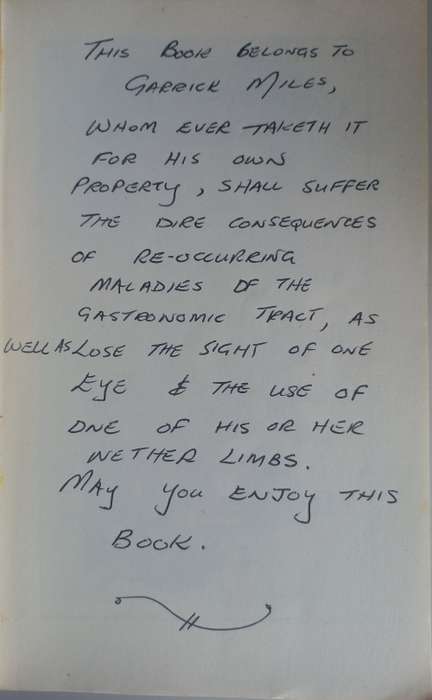 THIS BOOK BELONGS TO
GARRICK MILES,
WHOM EVER TAKETH IT
FOR HIS OWN
PROPERTY, SHALL SUFFER
THE DIRE CONSEQUENCES
OF RE-OCCURRING
MALADIES OF THE
GASTRONOMIC TRACT, AS
WELL AS LOSE THE SIGHT OF ONE
EYE & THE USE OF
ONE OF HIS OR HER
NETHER LIMBS.
MAY YOU ENJOY THIS
BOOK.